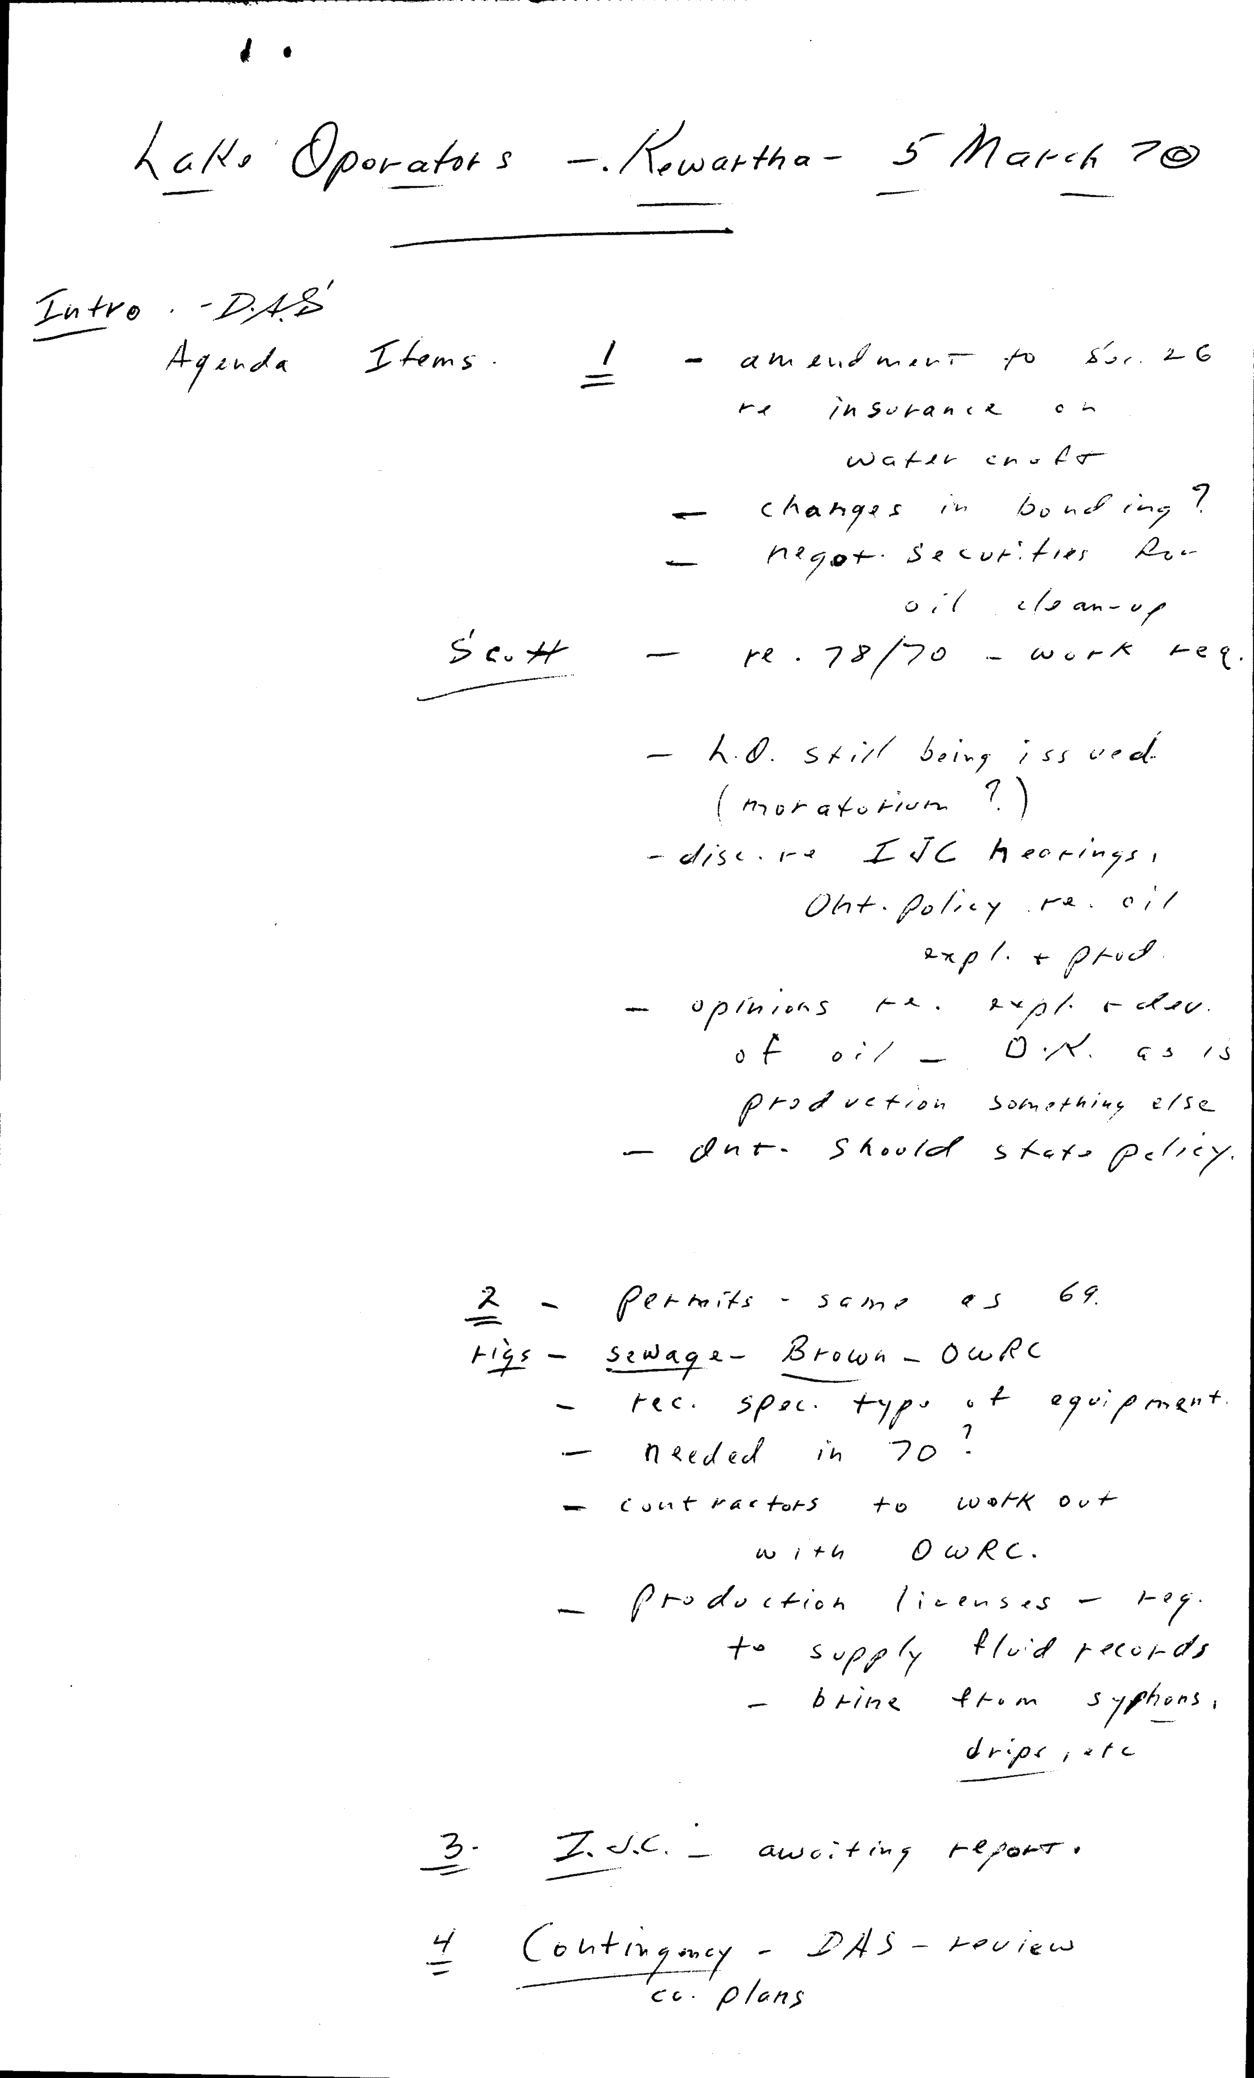 Lake Operators - Kewartha - 5 March 70
Intro. - D.A.S
Agenda Items. 1 - amendment to Sec. 26
re insurance on
water craft
- changes in bonding?
- negot. securities for
oil clean-up
Scott - re. 78/70 - work req.
- L.O. still being issued.
(moratorium?)
- disc. re IJC hearings,
Ont. policy re. oil
expl. + prod.
- opinions re. expl. + dev.
of oil - O.K. as is
production something else
- Ont. should state policy.
2 - permits - same as 69.
rigs - sewage - Brown - OWRC
- rec. spec. type of equipment.
- needed in 70?
- contractors to work out
with OWRC.
- production licenses - req.
to supply fluid records
- brine from syphons,
drips, etc
3. I.J.C. - awaiting report.
4 Contingency - DAS - review
co. plans